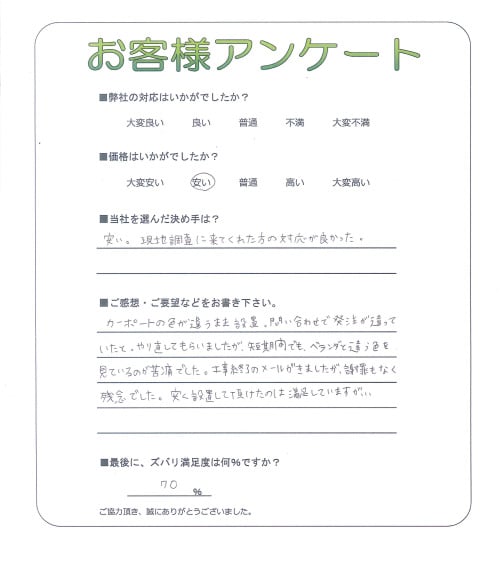 お客様アンケート
■弊社の対応はいかがでしたか？
大変良い　良い　普通　不満　大変不満
■価格はいかがでしたか？
大変安い　安い　普通　高い　大変高い
■当社を選んだ決め手は？
安い。現地調査に来てくれた方の対応が良かった。
■ご感想・ご要望などをお書き下さい。
カーポートの色が違うまま設置。問い合わせで発注が違って
いたと。やり直してもらいましたが、短期間でも、ベランダと違う色を
見ているのが苦痛でした。工事終了のメールがきましたが、謝罪もなく
残念でした。安く設置して頂けたのは満足していますが…
■最後に、ズバリ満足度は何％ですか？
70 ％
ご協力頂き、誠にありがとうございました。